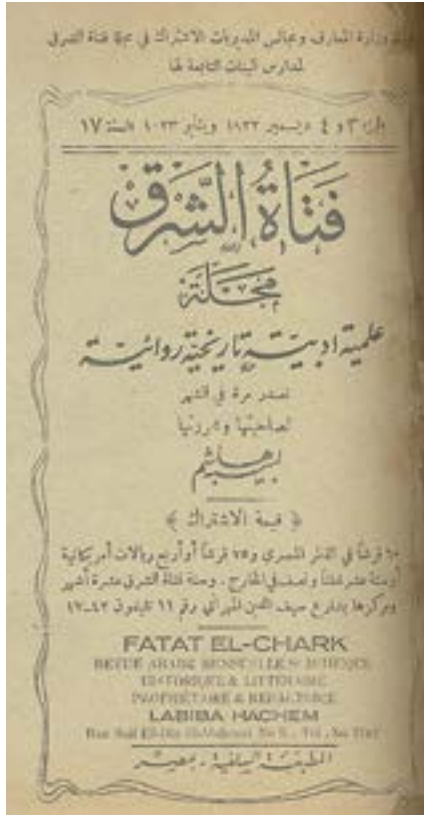 وزارة المعارف ومجالس المديريات الاشتراك في مجلة فتاة الشرق
لمدارس البنات التابعة لها
٣ و ٤ ديسمبر ١٩٢٢ ويناير ١٩٢٣ السنة ١٧
فَتَاةُ الشَّرق
مَجَلَّة
علمية ادبيّة تاريخيّة روائيّة
تصدر مرة في الشهر
لصاحبتها ومحررتها
لبيبه هاشم
﴿ قيمة الاشتراك ﴾
قرشاً في القطر المصري و٧٥ قرشاً أو أربع ريالات أمريكانية
أو ستة عشر شلناً ونصف في الخارج . وسنة فتاة الشرق عشرة أشهر
ومركزها بشارع سيف الدين المهراني رقم ١١ تليفون ٤٣-١٧
FATAT EL-CHARK
REVUE ARABE MENSUELLE SCIENTIFIQUE
HISTORIQUE & LITTÉRAIRE
PROPRIÉTAIRE & RÉDACTRICE
LABIBA HACHEM
Rue Seif El-Din El-Mahrani
المطبعة السلفية - بمصر